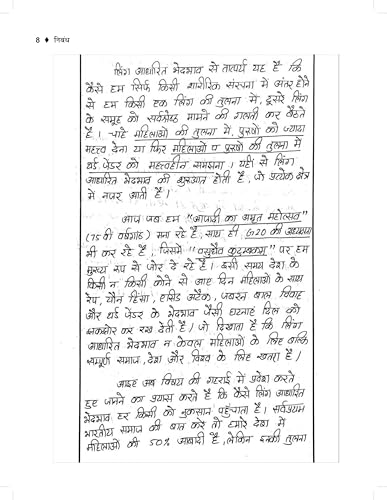 8 ◆ निबंध
लिंग आधारित भेदभाव से तात्पर्य यह है कि
कैसे हम सिर्फ किसी शारीरिक संरचना में अंतर होने
से हम किसी एक लिंग की तुलना में, दूसरे लिंग
के समूह को सर्वश्रेष्ठ मानने की गलती कर बैठते
है। चाहे महिलाओं की तुलना में, पुरुषों को ज्यादा
महत्व देना या फिर महिलाओ व पुरुषों की तुलना में
थर्ड जेंडर को महत्वहीन समझना। यहीं से लिंग
आधारित भेदभाव की शुरुआत होती है, जो प्रत्येक क्षेत्र
में नजर आती है।
आज जब हम "आजादी का अमृत महोत्सव"
(75 वीं वर्षगांठ) मना रहे है, साथ ही G20 की अध्यक्षता
भी कर रहे है, जिसमें "वसुधैव कुटुम्बकम" पर हम
मुख्य रूप से जोर दे रहे है। इसी समय देश के
किसी न किसी कोने से आए दिन महिलाओं के साथ
रेप, यौन हिंसा, एसिड अटैक, जबरन बाल विवाह
और थर्ड जेंडर के भेदभाव जैसी घटनाएं दिल को
झकझोर कर रख देती है। जो दिखाता है कि लिंग
आधारित भेदभाव न केवल महिलाओं के लिए बल्कि
सम्पूर्ण समाज, देश और विश्व के लिए खतरा है।
आइए अब विषय की गहराई में प्रवेश करते
हुए जानने का प्रयास करते है कि कैसे लिंग आधारित
भेदभाव हर किसी को नुकसान पहुंचाता है। सर्वप्रथम
भारतीय समाज की बात करे तो हमारे देश में
महिलाओं की 50% आबादी है, लेकिन इनकी तुलना